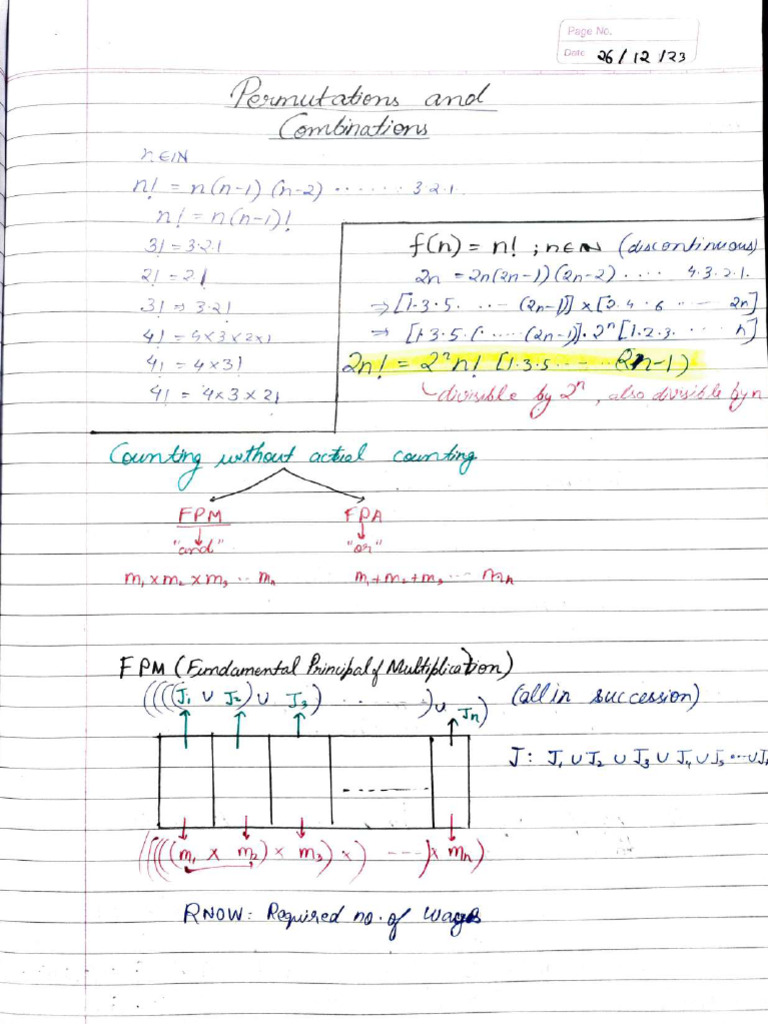 Page No.
Date 26/12/23
Permutations and
Combinations
n∈IN
n! = n(n-1) (n-2) ······ 3·2·1·
n! = n(n-1)!
3! = 3·2·1
2! = 2·1
3! ⇒ 3·2!
4! = 4×3×2×1
4! = 4×3!
4! = 4×3×2!
f(n) = n! ; n∈N (discontinuous)
2n = 2n(2n-1)(2n-2) ···· 4·3·2·1·
⇒ [1·3·5· ··· (2n-1)] × [2·4·6 ····· 2n]
⇒ [1·3·5·(·····(2n-1)]·2ⁿ[1·2·3· ··· n]
2n! = 2ⁿ n! [1·3·5 ······ (2n-1)
divisible by 2ⁿ, also divisible by n
Counting without actual counting
FPM FPA
"and" "or"
m₁×m₂×m₃ ·· mₙ m₁+m₂+m₃ ··· mₙ
FPM (Fundamental Principal of Multiplication)
((((J₁ ∪ J₂) ∪ J₃) ·······) ∪ Jₙ) (all in succession)
J: J₁ ∪ J₂ ∪ J₃ ∪ J₄ ∪ J₅ ··· ∪ J
(((((m₁ × m₂) × m₃) ×) ---) × mₙ)
RNOW: Required no. of ways